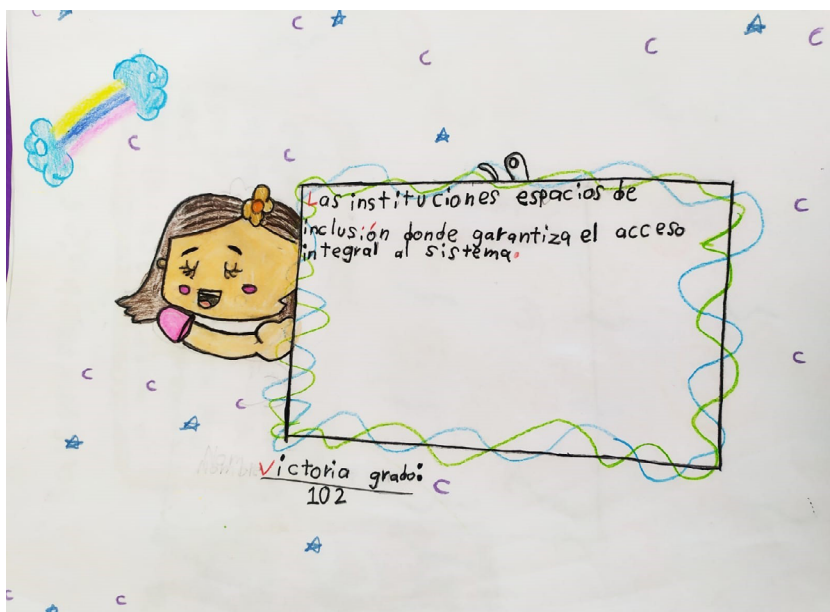 Las instituciones espacios de
inclusión donde garantiza el acceso
integral al sistema.
Victoria grado:
102